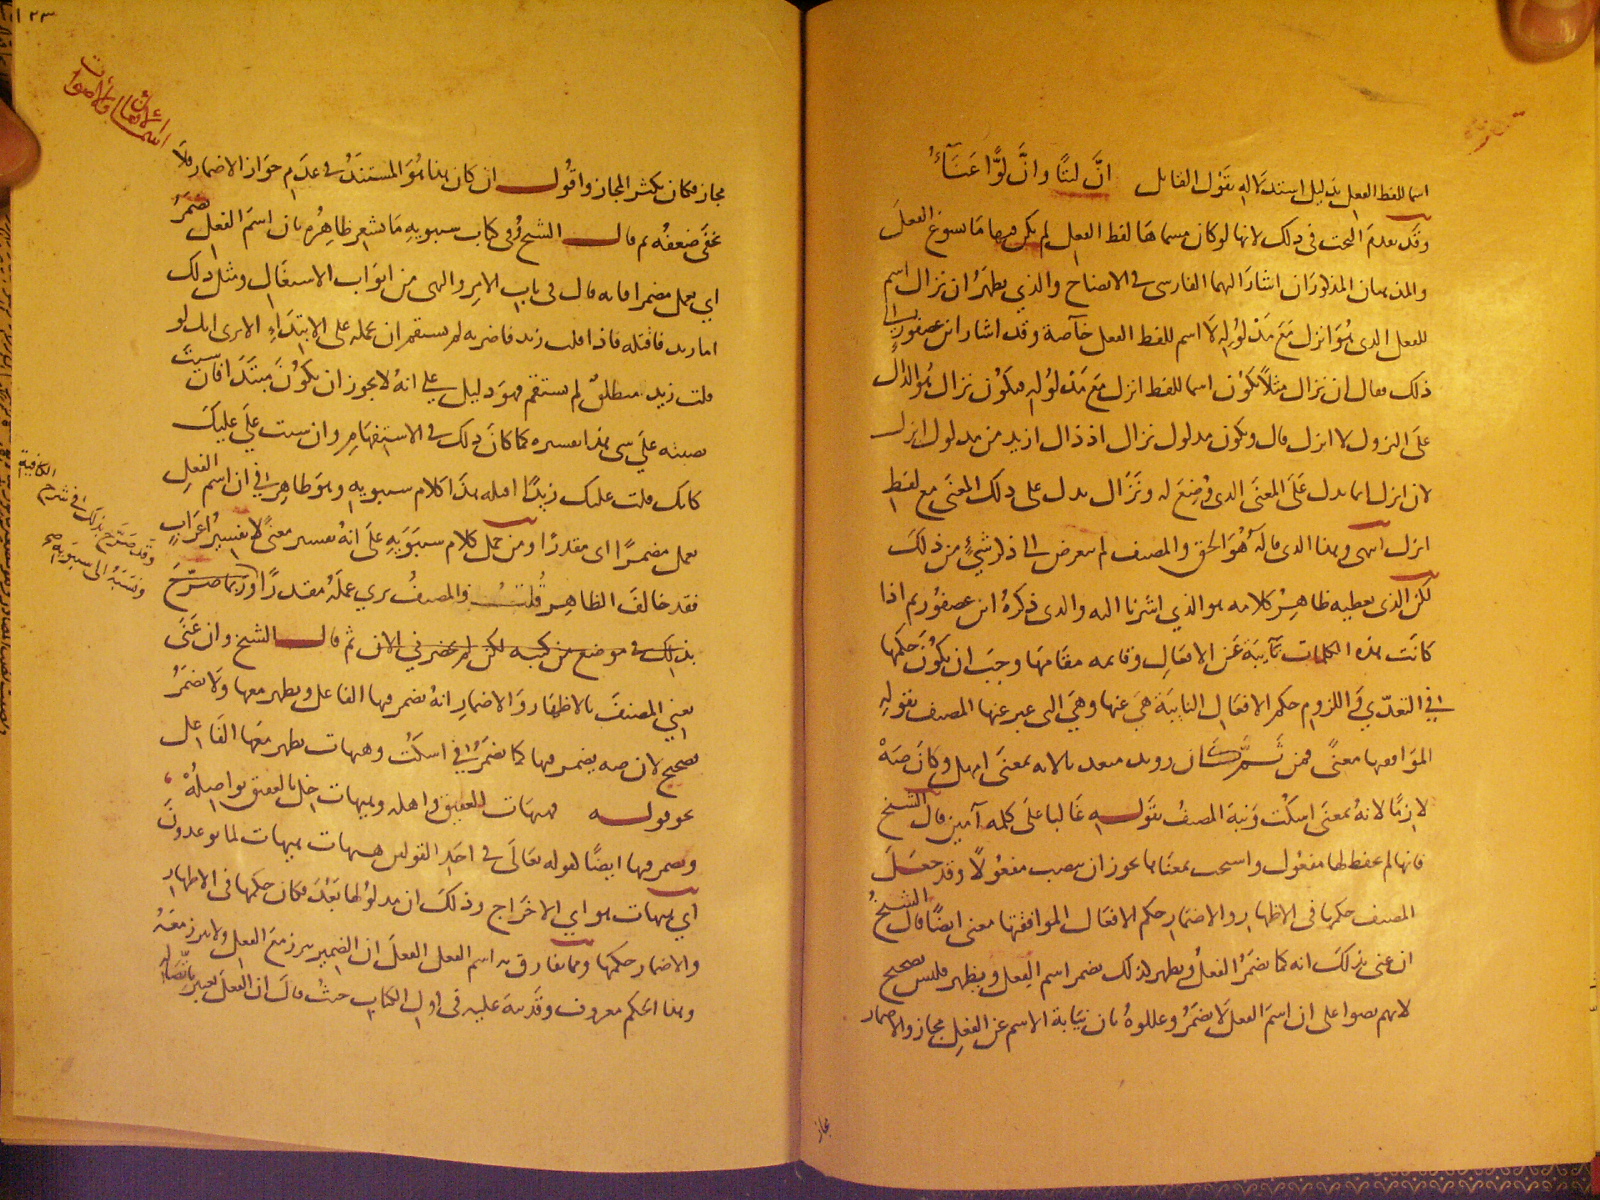 اسما للفظ الفعل بدليل استدلاله بقول القائل انَّ لَيتًا وانَّ لوًّا عَنَآءُ
وقد تقدم البحث في ذلك لانها لو كان مسماها لفظ الفعل لم يكن فيها ما يسوغ الفعل
والمذهبان المذكوران اشار اليهما الفارسي في الايضاح والذي يظهر ان نزال اسم
للفعل الذي هو انزل مع مدلوله لا اسم للفظ الفعل خاصة وقد اشار ابن عصفور الى
ذلك فقال ان نزال مثلاً يكون اسما للفظ انزل مع مدلوله فيكون نزال هو الدال
على النزول لا انزل قال ويكون مدلول نزال اذ ذاك ازيد من مدلول انزل
لان انزل انما يدل على المعنى الذي وضع له ونزال يدل على ذلك المعنى مع لفظ
انزل انتهى وهذا الذي قاله هو الحق والمصنف لم يتعرض الى ذكر شيءٍ من ذلك
لكن الذي يعطيه ظاهر كلامه هو الذي اشرنا اليه والذي ذكره ابن عصفور ثم اذا
كانت هذه الكلمات نآيبة عن الافعال وقايمه مقامها وجب ان يكون حكمها
في التعدّي واللزوم حكم الافعال النايبة هي عنها وهي التي عبر عنها المصنف بقوله
الموافقها معنىً فمن ثَمَّ كان رويد متعديا لانه بمعنى امهل وكان صَهْ
لازمًا لانه بمعنى اسكت ونبه المصنف بقوله غالبا على كلمه آمين قال الشيخ
فانها لم يحفظ لها مفعول واستجب بمعناها يجوز ان ينصب مفعولاً وقد جعل
المصنف حكمها في الاظهار والاضمار حكم الافعال الموافقتها معنى ايضًا قال الشيخ
ان عنى بذلك انه كما يضمر الفعل ويظهر كذلك يضمر اسم الفعل ويظهر فليس بصحيح
لانهم نصوا على ان اسم الفعل لا يضمر وعللوه بان نيابة الاسم عن الفعل مجاز والاضمار
مجاز
اسماء الأفعال والأصوات
مجاز فكان يكثر المجاز واقول ان كان هذا هو المستند في عدم جواز الاضمار فلا
يخفى ضعفه ثم قال الشيخ وفي كتاب سيبويه ما يشعر ظاهره بان اسم الفعل يضمر
اي يعمل مضمرا فانه قال في باب الامر والنهي من ابواب الاشتغال ومثل ذلك
اما زيد فاقتله فاذا قلت زيد فاضربه لم يستقم ان تحمله على الابتداء الا ترى انك لو
قلت زيد فمنطلق لم يستقم فهو دليل على انه لا يجوز ان يكون مبتدا فان شيت
نصبته على شي هذا تفسيره كما كان ذلك في الاستفهام وان شيت على عليك
كانك قلت عليك زيدًا اقتله هذا كلام سيبويه وهو ظاهر في ان اسم الفعل
يعمل مضمرًا اى مقدرًا ومن حمل كلام سيبويه على انه تفسير معنىً لا تفسير اعراب
فقد خالف الظاهر قلت والمصنف يرى عمله مقدرًا وربما صرّح
بذلك في موضع من كتبه لكن لم يحضرني الان ثم قال الشيخ وان عنى
يعني المصنف بالاظهار والاضمار انه يضمر فيها الفاعل ويظهر معها ولا يضمر
فصحيح لان صه يضمر فيها كما يضمر في اسكت وهيهات يظهر معها الفاعل
نحو قوله فهيهات العقيق واهله وهيهات خل بالعقيق نواصله
ويضمر فيها ايضًا لقوله تعالى في احد القولين هيهات هيهات لما توعدون
اي هيهات هو اي الاخراج وذلك ان مدلولها بعد فكان حكمها في الاظهار
والاضمار حكمها ومما يفارق به اسم الفعل الفعل ان الضمير يبرز مع الفعل ولا يبرز معه
وهذا الحكم معروف وقد نبه عليه في اول الكتاب حيث قال ان الفعل يعتبر باتّصاله
وقد صَرّح بذلك في شرح الكافية
ونسبه الى سيبويه صح